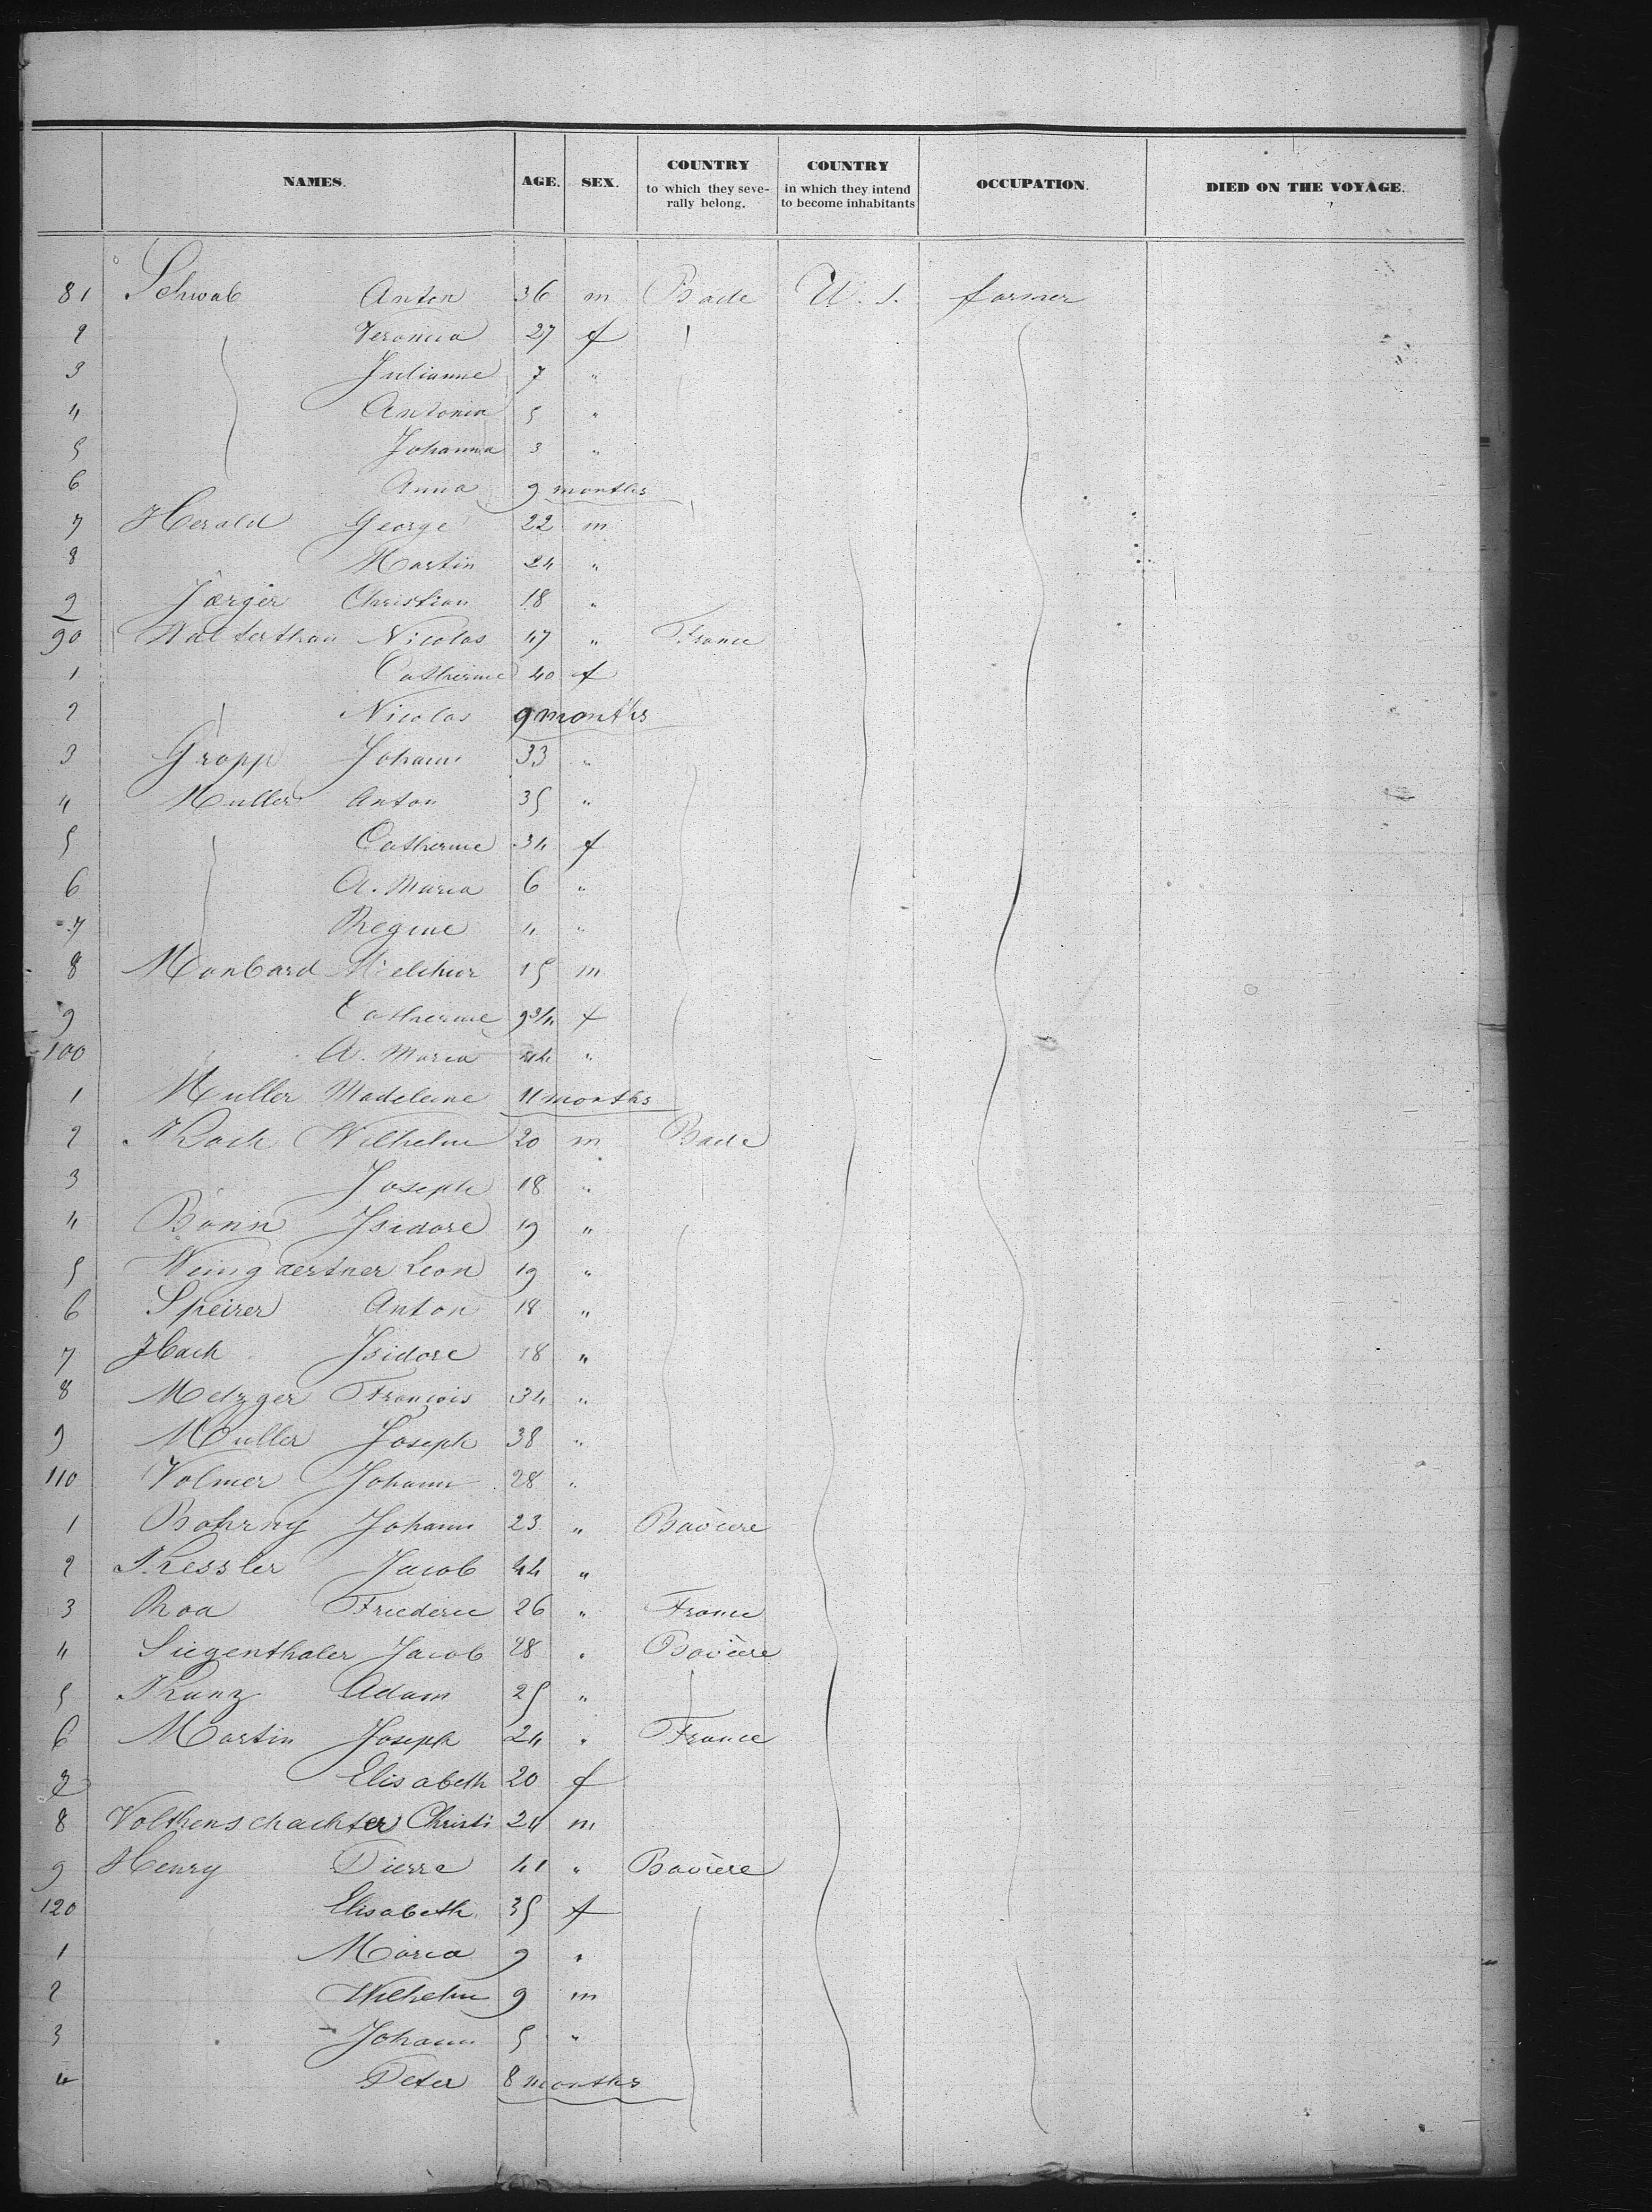 NAMES. AGE. SEX. COUNTRY to which they severally belong. COUNTRY in which they intend to become inhabitants OCCUPATION. DIED ON THE VOYAGE.
81 Schwab Anton 36 m Bade U. S. farmer
2 Veronica 27 f
3 Julianne 7 "
4 Antonia 5 "
5 Johanna 3 "
6 Anna 9 months
7 Herald George 22 m
8 Martin 24 "
9 Jœrger Christian 18 "
90 Nicolas 47 " France
1 Catherine 40 f
2 Nicolas 9 months
3 Gropp Johann 33 "
4 Muller Anton 35 "
5 Catherine 34 f
6 A. Maria 6 "
7 Regine 4 "
8 Monbard Melchior 15 m
9 Catherine 9 3/4 f
100 A. Maria "
1 Muller Madeleine 11 months
2 Koch Wilhelm 20 m Bade
3 Joseph 18 "
4 Bonin Isidore 19 "
5 Weingaertner Leon 19 "
6 Speirer Anton 18 "
7 Ibach Isidore 18 "
8 Metzger François 34 "
9 Muller Joseph 38 "
110 Volmer Johann 28 "
1 Bohrny Johann 23 " Bavière
2 Kessler Jacob 44 "
3 Roa Friederic 26 " France
4 Siegenthaler Jacob 28 " Bavière
5 Kunz Adam 25 "
6 Martin Joseph 24 " France
7 Elisabeth 20 f
8 Volthenschachter Christi 24 m
9 Henry Pierre 41 " Bavière
120 Elisabeth 35 f
1 Maria 9 "
2 Wilhelm 9 m
3 Johann 5 "
4 Peter 8 months